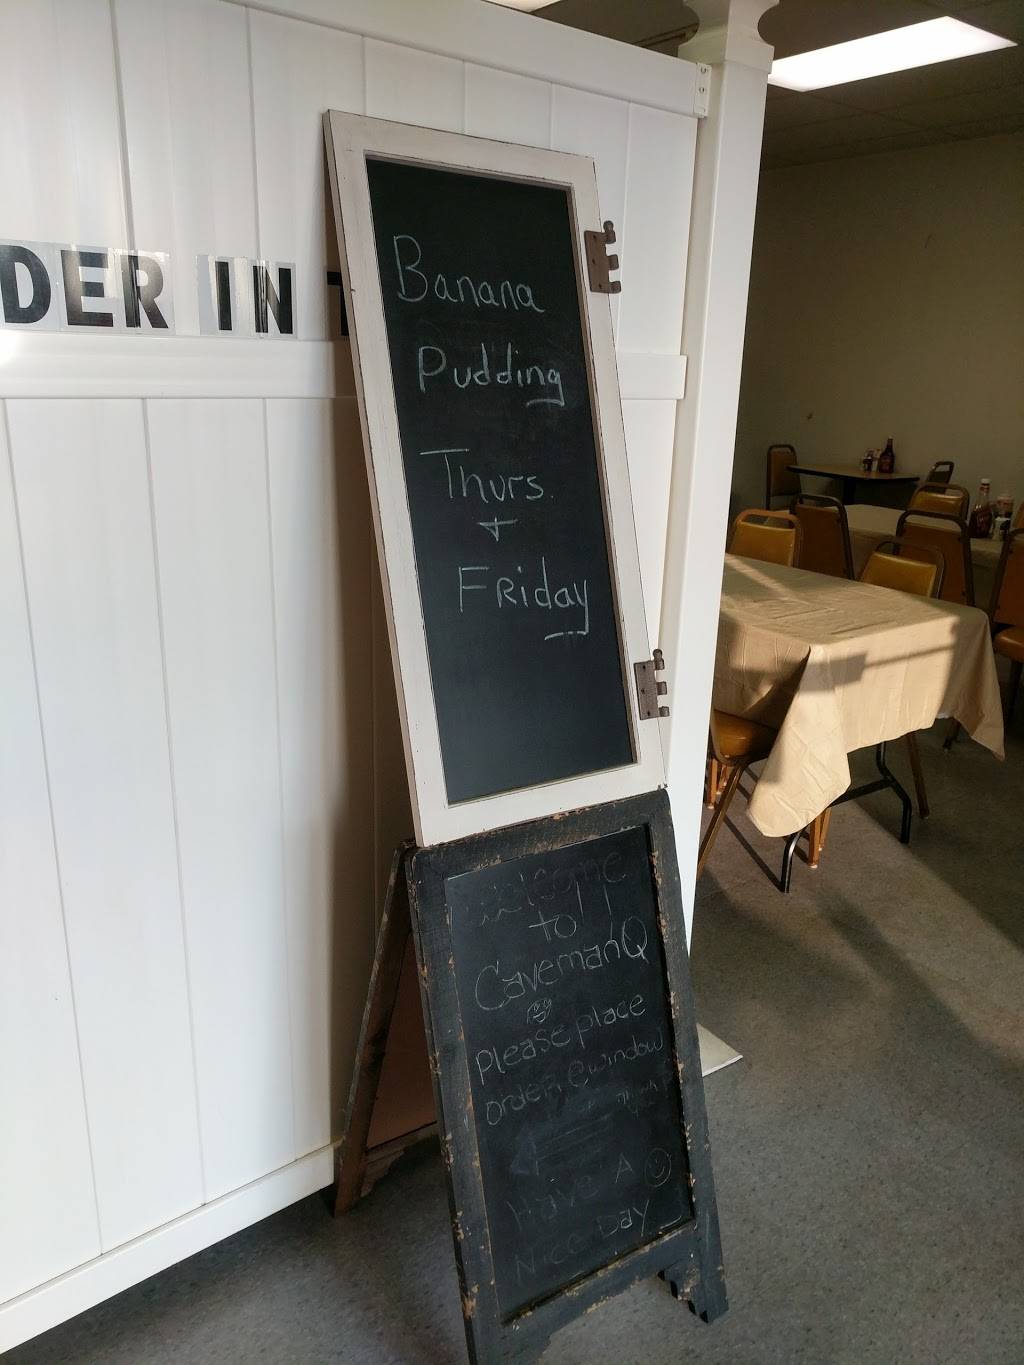 DER IN
Banana
Pudding
Thurs.
+
Friday
Welcome
to
CavemanQ
please place
order @window
Have A
Nice Day